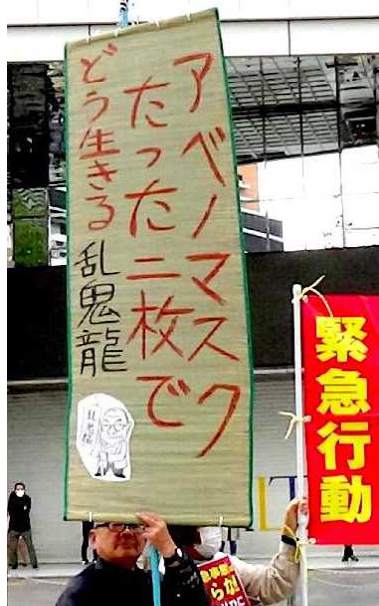 アベノマスク
たった二枚で
どう生きる
乱鬼龍
乱鬼龍
緊急行動